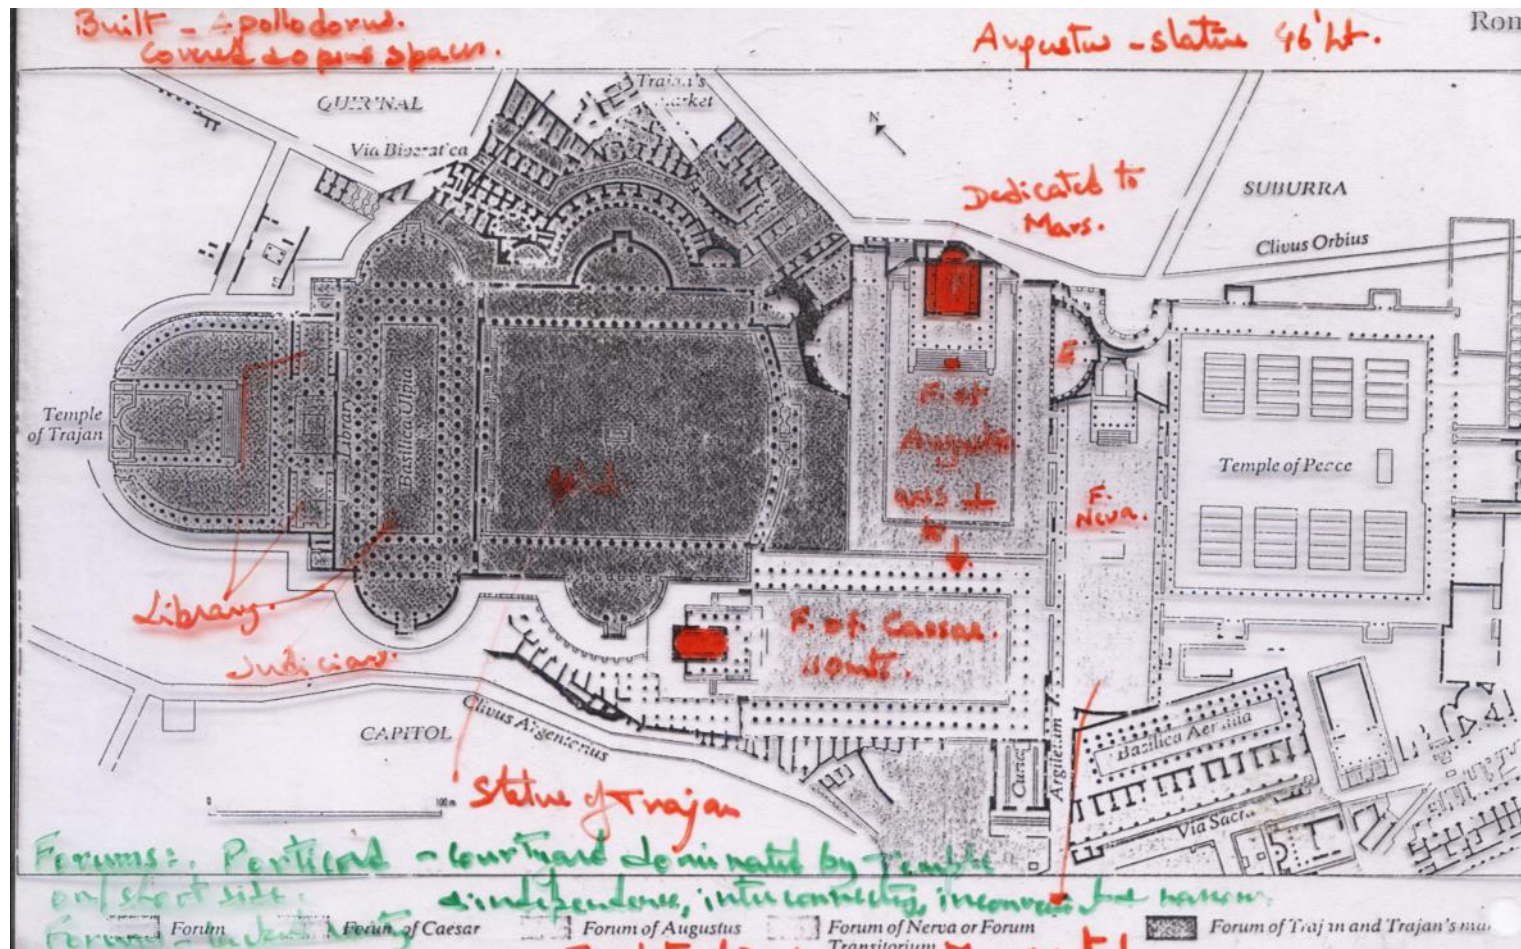 Built - Apollodorus.
Covered & open spaces.
Augustus - statue 46' ht.
Rom
QUIRINAL
Trajan's
market
Via Biberatica
N
Dedicated to
Mars.
SUBURRA
Clivus Orbius
Temple
of Trajan
Library
Basilica Ulpia
F. of
Augustus
axis ⊥
to
E
F.
Neva.
Temple of Peace
Library.
Judiciary.
F. of Caesar.
CAPITOL
Clivus Argentarius
Curia
Argiletum
Basilica Aemilia
Via Sacra
0 100 m
Statue of Trajan
Forums: Porticoed - courtyard dominated by Temple
on short side.
Forum
Forum of Caesar
Forum of Augustus
Forum of Nerva or Forum
Transitorium
Forum of Trajan and Trajan's ma